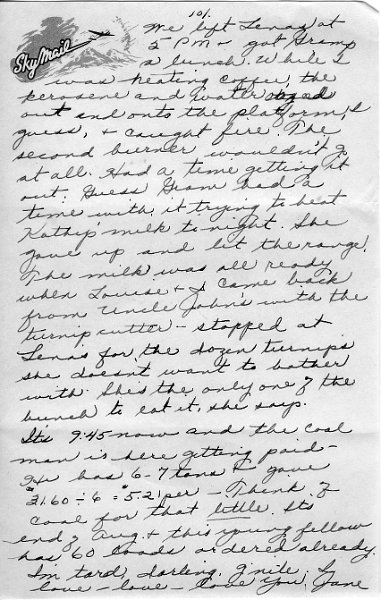 101.
Sky Mail
We left Lenas at
5 P.M. & got Gramp
a lunch. While I
was heating coffee, the
kerosene and water oozed
out and onto the platform, I
guess, & caught fire. The
second burner wouldn't go
at all. Had a time getting it
out. Guess Gram had a
time with it trying to heat
Kathy's milk tonight. She
gave up and lit the range.
The milk was all ready
when Louise & I came back
from Uncle John's with the
turnip cutter - stopped at
Lenas for the dozen turnips
she doesn't want to bother
with. She's the only one of the
bunch to eat it, she says.
Its 9:45 now and the coal
man is here getting paid -
He has 6-7 tons & gave
$31.60 ÷ 6 = 5.21 per - Think of
coal for that little. Its
end of Aug. & this young fellow
has 60 loads ordered already.
I'm tard, darling. G'nite. I
love - love - love you, Jane